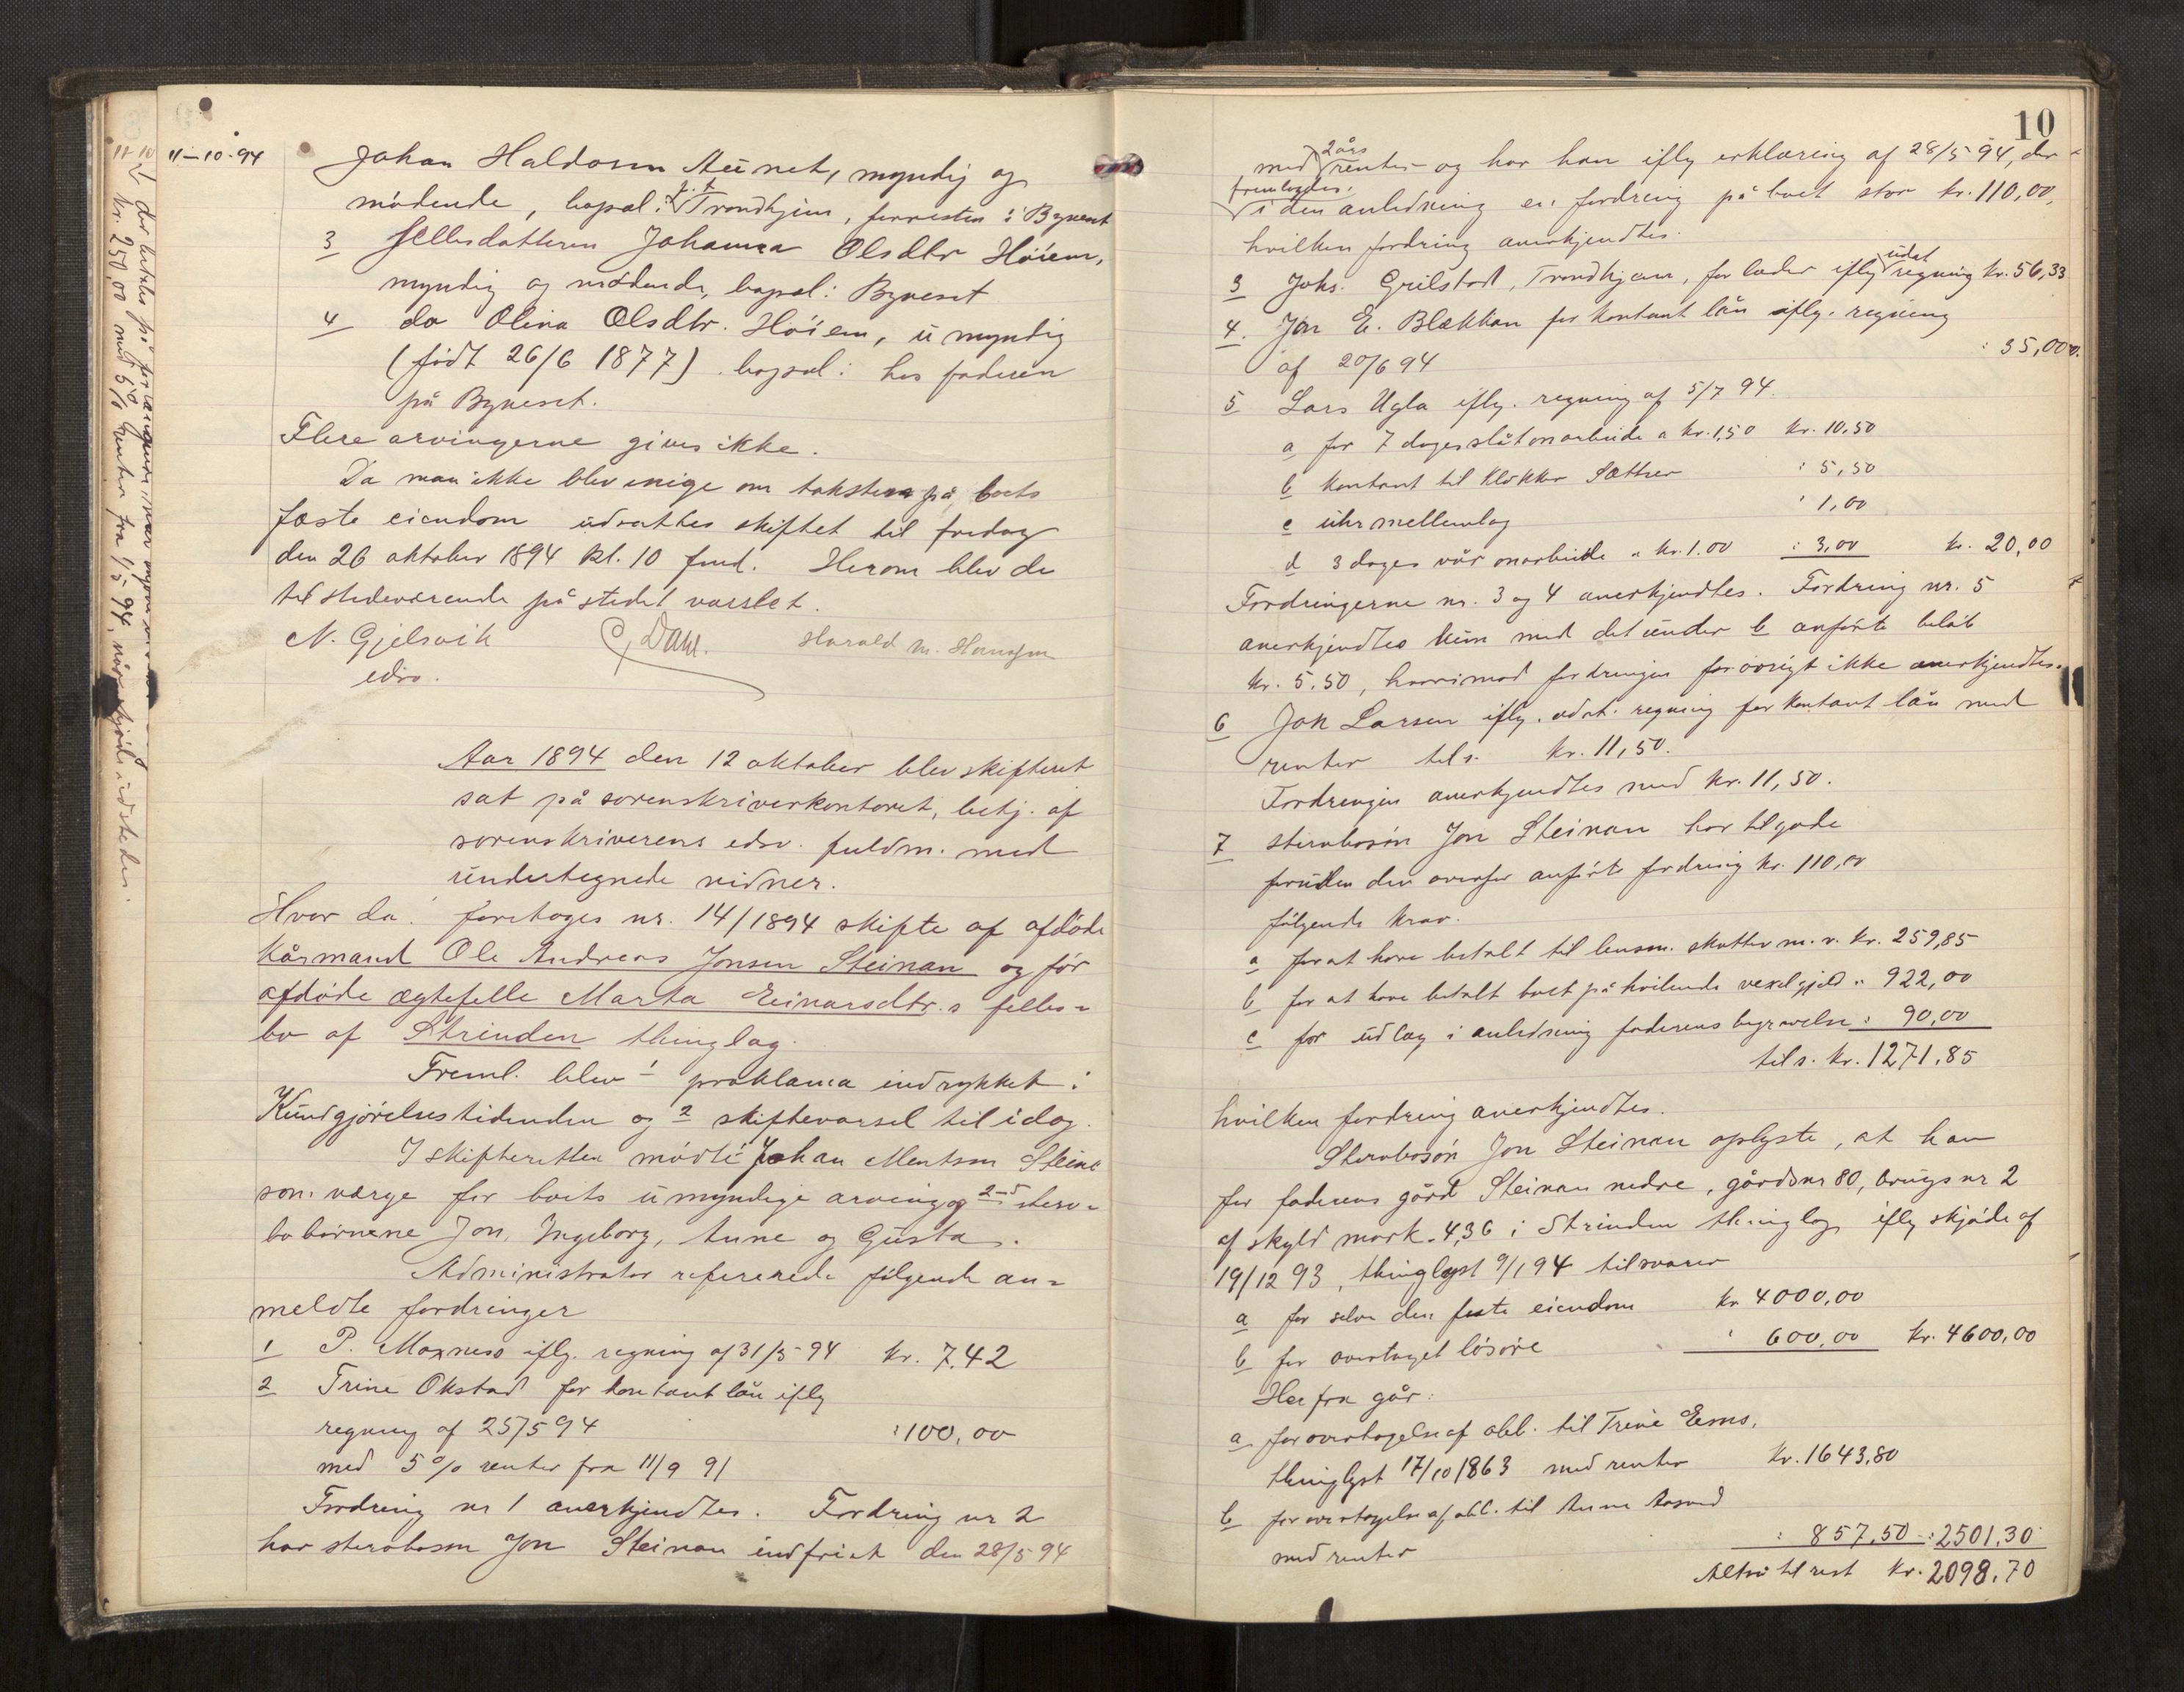 11-10-94
Johan Haldosen Aunet, myndig og
mødende, bopæl: p.t. Trondhjem, forresten i Byneset
3 Fællesdatteren Johanna Olsdtr Høiem,
myndig og mødende, bopæl: Byneset
4 do Olina Olsdtr. Høiem, umyndig
(født 26/6 1877) bopæl: hos faderen
på Byneset.
Flere arvingerne gives ikke.
Da man ikke blev enige om taksten på boets
faste eiendom udsattes skiftet til fredag
den 26 oktober 1894 kl. 10 fmd. Herom blev de
tilstedeværende på stedet varslet.
N. Gjelsvik C. Dahl. Harald M. Hansen
edsv.
Aar 1894 den 12 oktober blev skifteret
sat på sorenskriverkontoret, betj. af
sorenskriverens edsv. fuldm. med
undertegnede vidner.
Hvor da: foretoges nr. 14/1894 skifte af afdøde
kårmand Ole Andreas Jonsen Steinan og før
afdøde ægtefelle Marta Einarsdtr.s felles-
bo af Strinden thinglag.
Freml. blev 1 proklama indrykket i
Kundgjørelsestidenden og 2 skiftevarsel til idag.
I skifteretten mødte Johan Mentsen Steine
som værge for boets umyndige arving og 2-5 sterv-
bobørnene Jon, Ingeborg, Anne og Gusta.
Administrator refererede følgende an-
meldte fordringer
1 P. Moxness iflg. regning af 31/5 94 kr. 7.42
2 Trine Okstad for kontant lån iflg
regning af 25/5 94 : 100,00
med 5% renter fra 11/9 91
Fordring nr 1 anerkjendtes. Fordring nr 2
har stervbosøn Jon Steinan indfriet den 28/5 94
10
med 2 års renter og har han iflg erklæring af 28/5 94, der
fremlagdes, i den anledning en fordring på boet stor kr. 110,00,
hvilken fordring anerkjendtes.
3 Johs. Grilstad, Trondhjem, for læder iflg udat regning kr. 56,33
4. Jon E. Blækkan for kontant lån iflg. regning
af 20/6 94 : 35,00
5 Lars Ugla iflg. regning af 5/7 94.
a for 7 dages slåtonarbeide a kr. 1,50 kr. 10.50
b kontant til klokker Sættrer : 5,50
c uhrmellemlag : 1,00
d 3 dages våronarbeide a kr. 1.00 : 3,00 kr. 20,00
Fordringerne nr. 3 og 4 anerkjendtes. Fordring nr. 5
anerkjendtes kun med det under b anførte beløb
kr. 5.50, hvorimod fordringen forøvrigt ikke anerkjendtes.
6 Jon Larsen iflg. udat. regning for kontant lån med
renter tils. kr. 11,50.
Fordringen anerkjendtes med kr. 11,50.
7 stervbosøn Jon Steinan har tilgode
foruden den ovenfor anførte fordring kr. 110,00
følgende krav.
a for at have betalt til lensm. skatter m.v. kr. 259,85
b for at have betalt boet påhvilende vexelgjeld " 922,00
c for udlæg i anledning faderens begravelse : 90,00
tils. kr. 1271.85
hvilken fordring anerkjendtes.
Stervbosøn Jon Steinan oplyste, at han
for faderens gård Steinan nedre, gårdsnr 80, brugsnr 2
af skyld mark 4,36 i Strinden thinglag iflg skjøde af
19/12 93, thinglyst 9/1 94 tilsvarer
a for selve den faste eiendom kr 4000,00
b for overtaget løsøre : 600,00 kr. 4600,00
Herfra går:
a for overtagelse af obl. til Trine
thinglyst 17/10 1863 med renter kr. 1643,80
b for overtagelse af obl. til Anne Aasved
med renter : 857,50 : 2501,30
Altså til rest kr. 2098.70